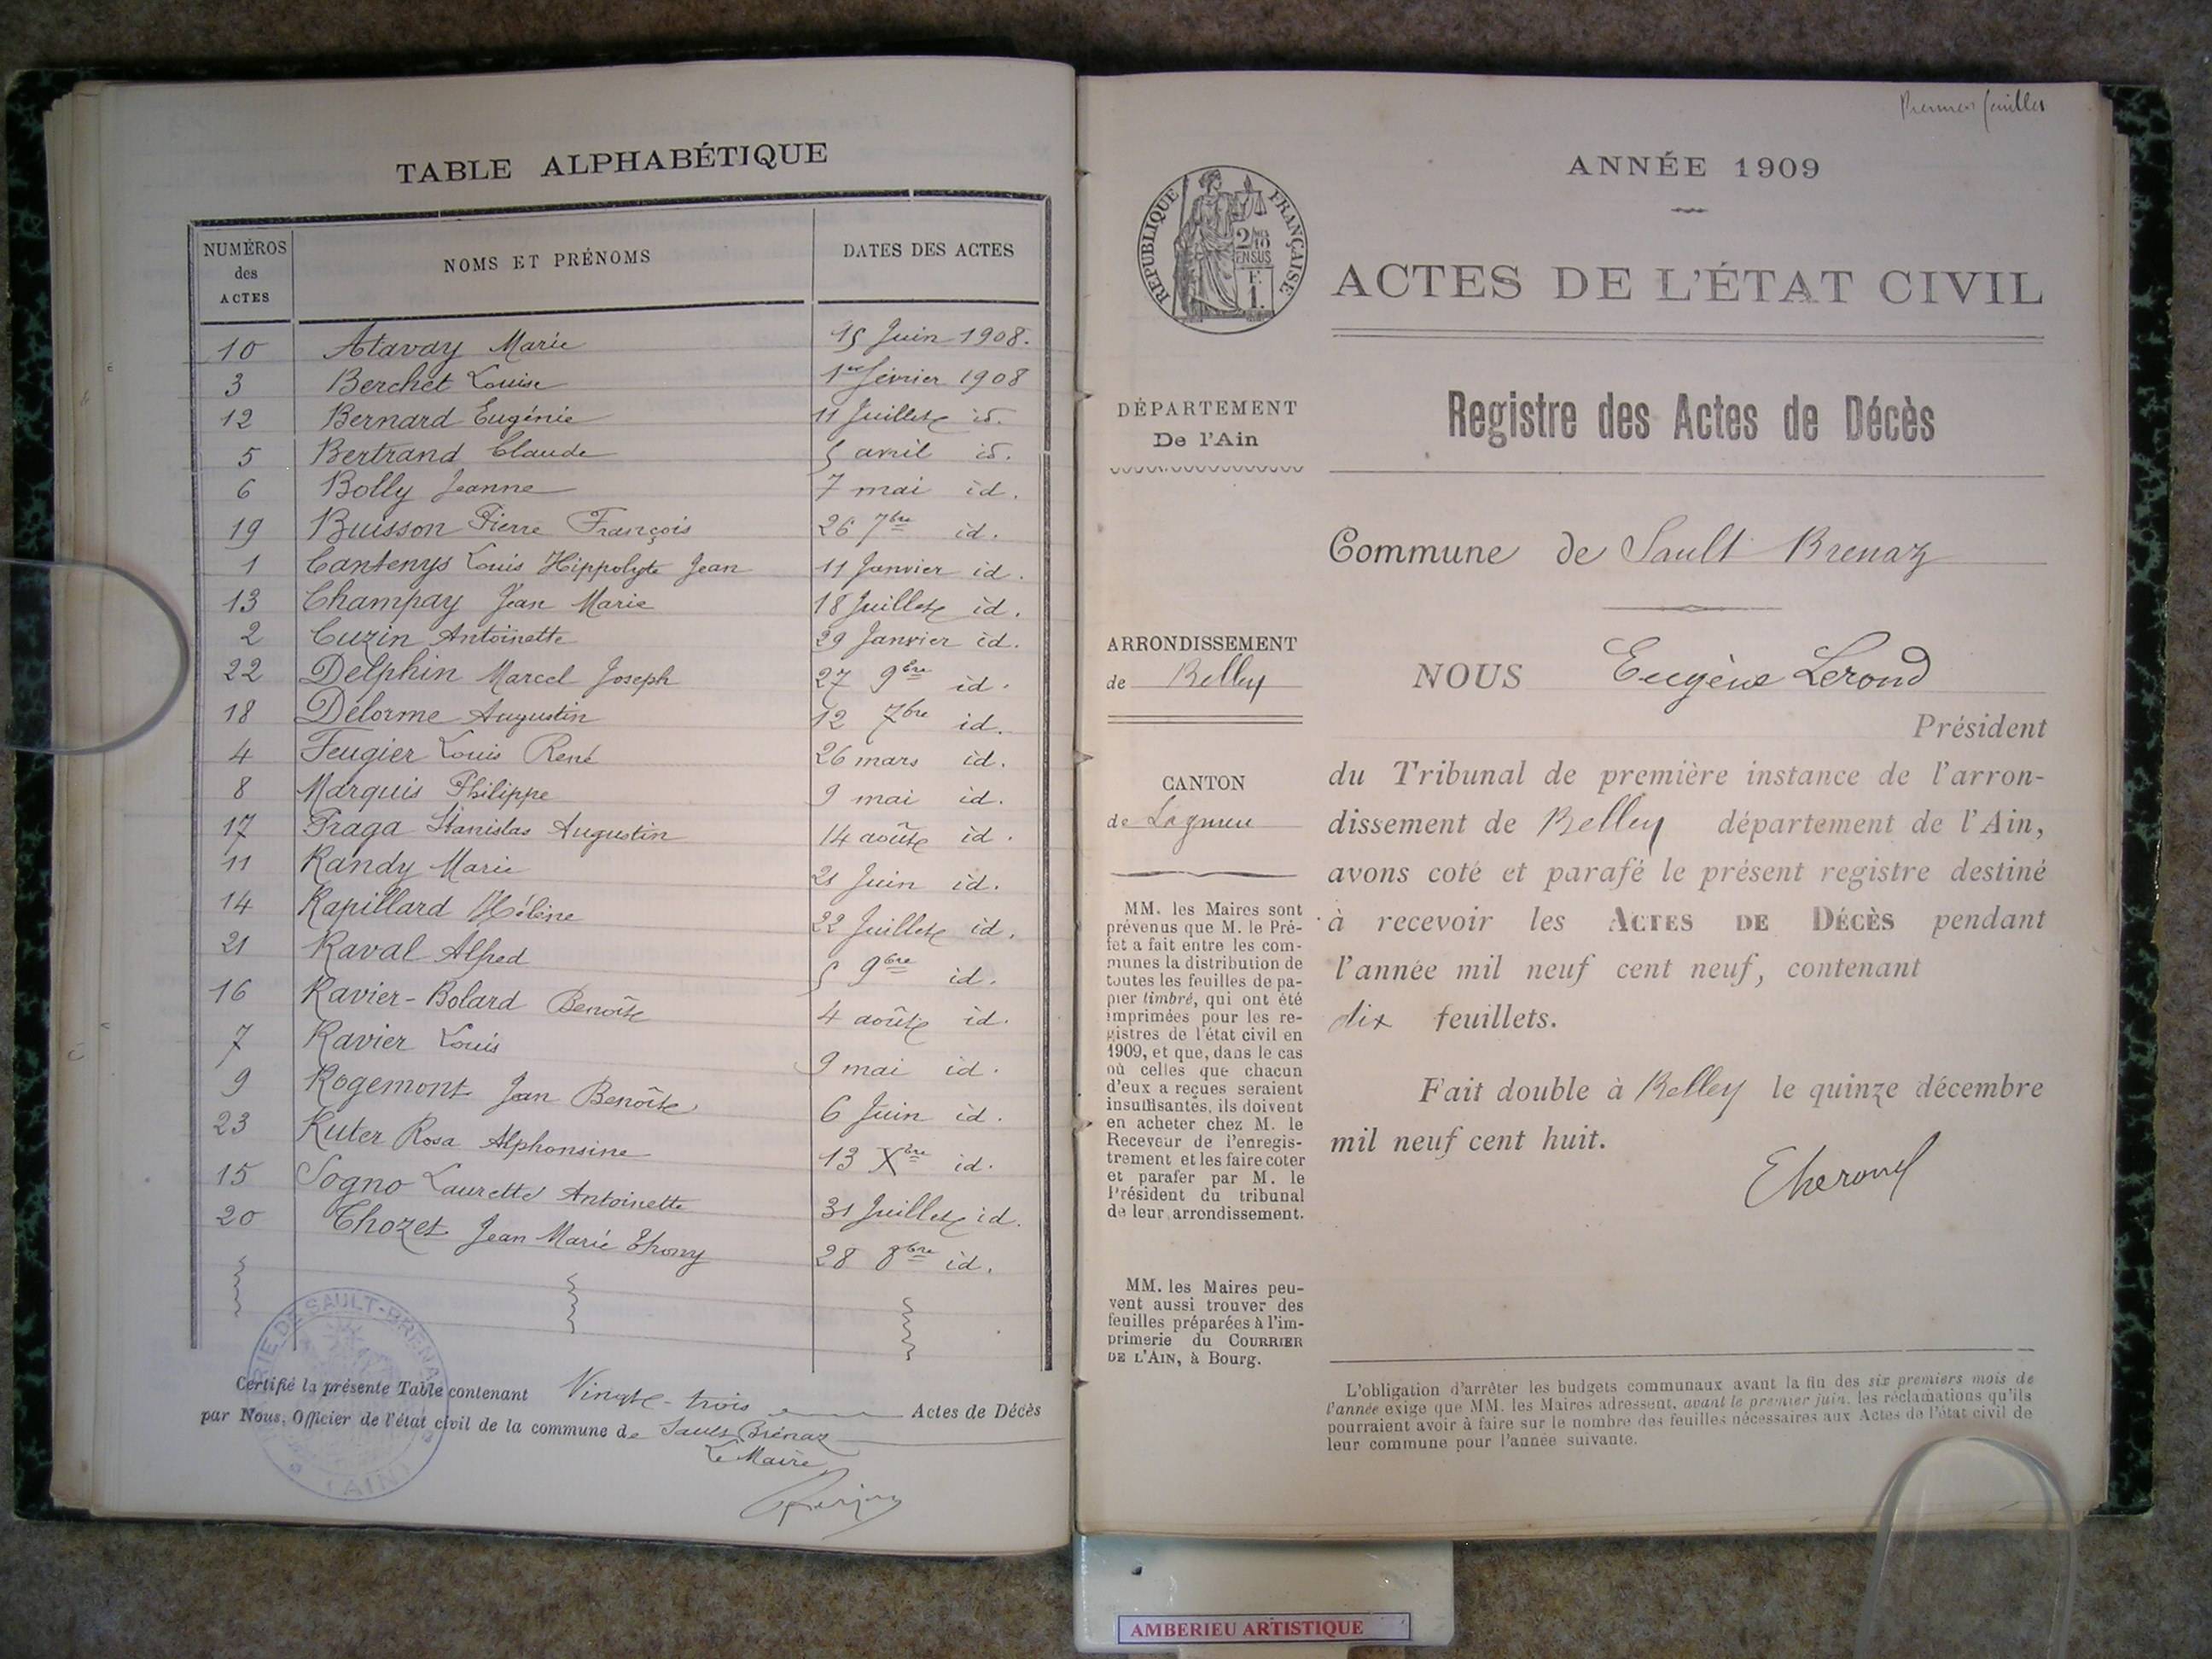 TABLE ALPHABÉTIQUE
NUMÉROS des ACTES NOMS ET PRÉNOMS DATES DES ACTES
10 Atavay Marie 15 Juin 1908.
3 Berchet Louise 1er février 1908
12 Bernard Eugénie 11 Juillet id.
5 Bertrand Claude 5 avril id.
6 Bolly Jeanne 7 mai id.
19 Buisson Pierre François 26 7bre id.
1 Cantenys Louis Hippolyte Jean 11 Janvier id.
13 Champay Jean Marie 18 Juillet id.
2 Cuzin Antoinette 29 Janvier id.
22 Delphin Marcel Joseph 27 9bre id.
18 Délorme Augustin 12 7bre id.
4 Feugier Louis René 26 mars id.
8 Marquis Philippe 9 mai id.
17 Praga Stanislas Augustin 14 août id.
11 Randy Marie 21 Juin id.
14 Rapillard Hélène 22 Juillet id.
21 Raval Alfred 5 9bre id.
16 Ravier-Bolard Benoît 4 août id.
7 Ravier Louis 9 mai id.
9 Rogemont Jean Benoît 6 Juin id.
23 Ruter Rosa Alphonsine 13 Xbre id.
15 Sogno Laurette Antoinette 31 Juillet id.
20 Thozet Jean Marie Thony 28 8bre id.
MAIRIE DE SAULT-BRÉNAZ
(AIN)
Certifié la présente Table contenant Vingt-trois Actes de Décès
par Nous, Officier de l'état civil de la commune de Sault Brénaz
Le Maire
Premier feuillet
ANNÉE 1909
RÉPUBLIQUE FRANÇAISE
ACTES DE L'ÉTAT CIVIL
DÉPARTEMENT
De l'Ain
Registre des Actes de Décès
Commune de Sault Brenaz
ARRONDISSEMENT
de Belley
NOUS Eugène Lerond
Président
CANTON
de Lagnieu
du Tribunal de première instance de l'arron-
dissement de Belley département de l'Ain,
avons coté et parafé le présent registre destiné
à recevoir les ACTES DE DÉCÈS pendant
l'année mil neuf cent neuf, contenant
dix feuillets.
Fait double à Belley le quinze décembre
mil neuf cent huit.
MM. les Maires sont
prévenus que M. le Pré-
fet a fait entre les com-
munes la distribution de
toutes les feuilles de pa-
pier timbré, qui ont été
imprimées pour les re-
gistres de l'état civil en
1909, et que, dans le cas
où celles que chacun
d'eux a reçues seraient
insuffisantes, ils doivent
en acheter chez M. le
Receveur de l'enregis-
trement et les faire coter
et parafer par M. le
Président du tribunal
de leur arrondissement.
MM. les Maires peu-
vent aussi trouver des
feuilles préparées à l'im-
primerie du COURRIER
DE L'AIN, à Bourg.
L'obligation d'arrêter les budgets communaux avant la fin des six premiers mois de
l'année exige que MM. les Maires adressent, avant le premier juin, les réclamations qu'ils
pourraient avoir à faire sur le nombre des feuilles nécessaires aux Actes de l'état civil de
leur commune pour l'année suivante.
AMBERIEU ARTISTIQUE